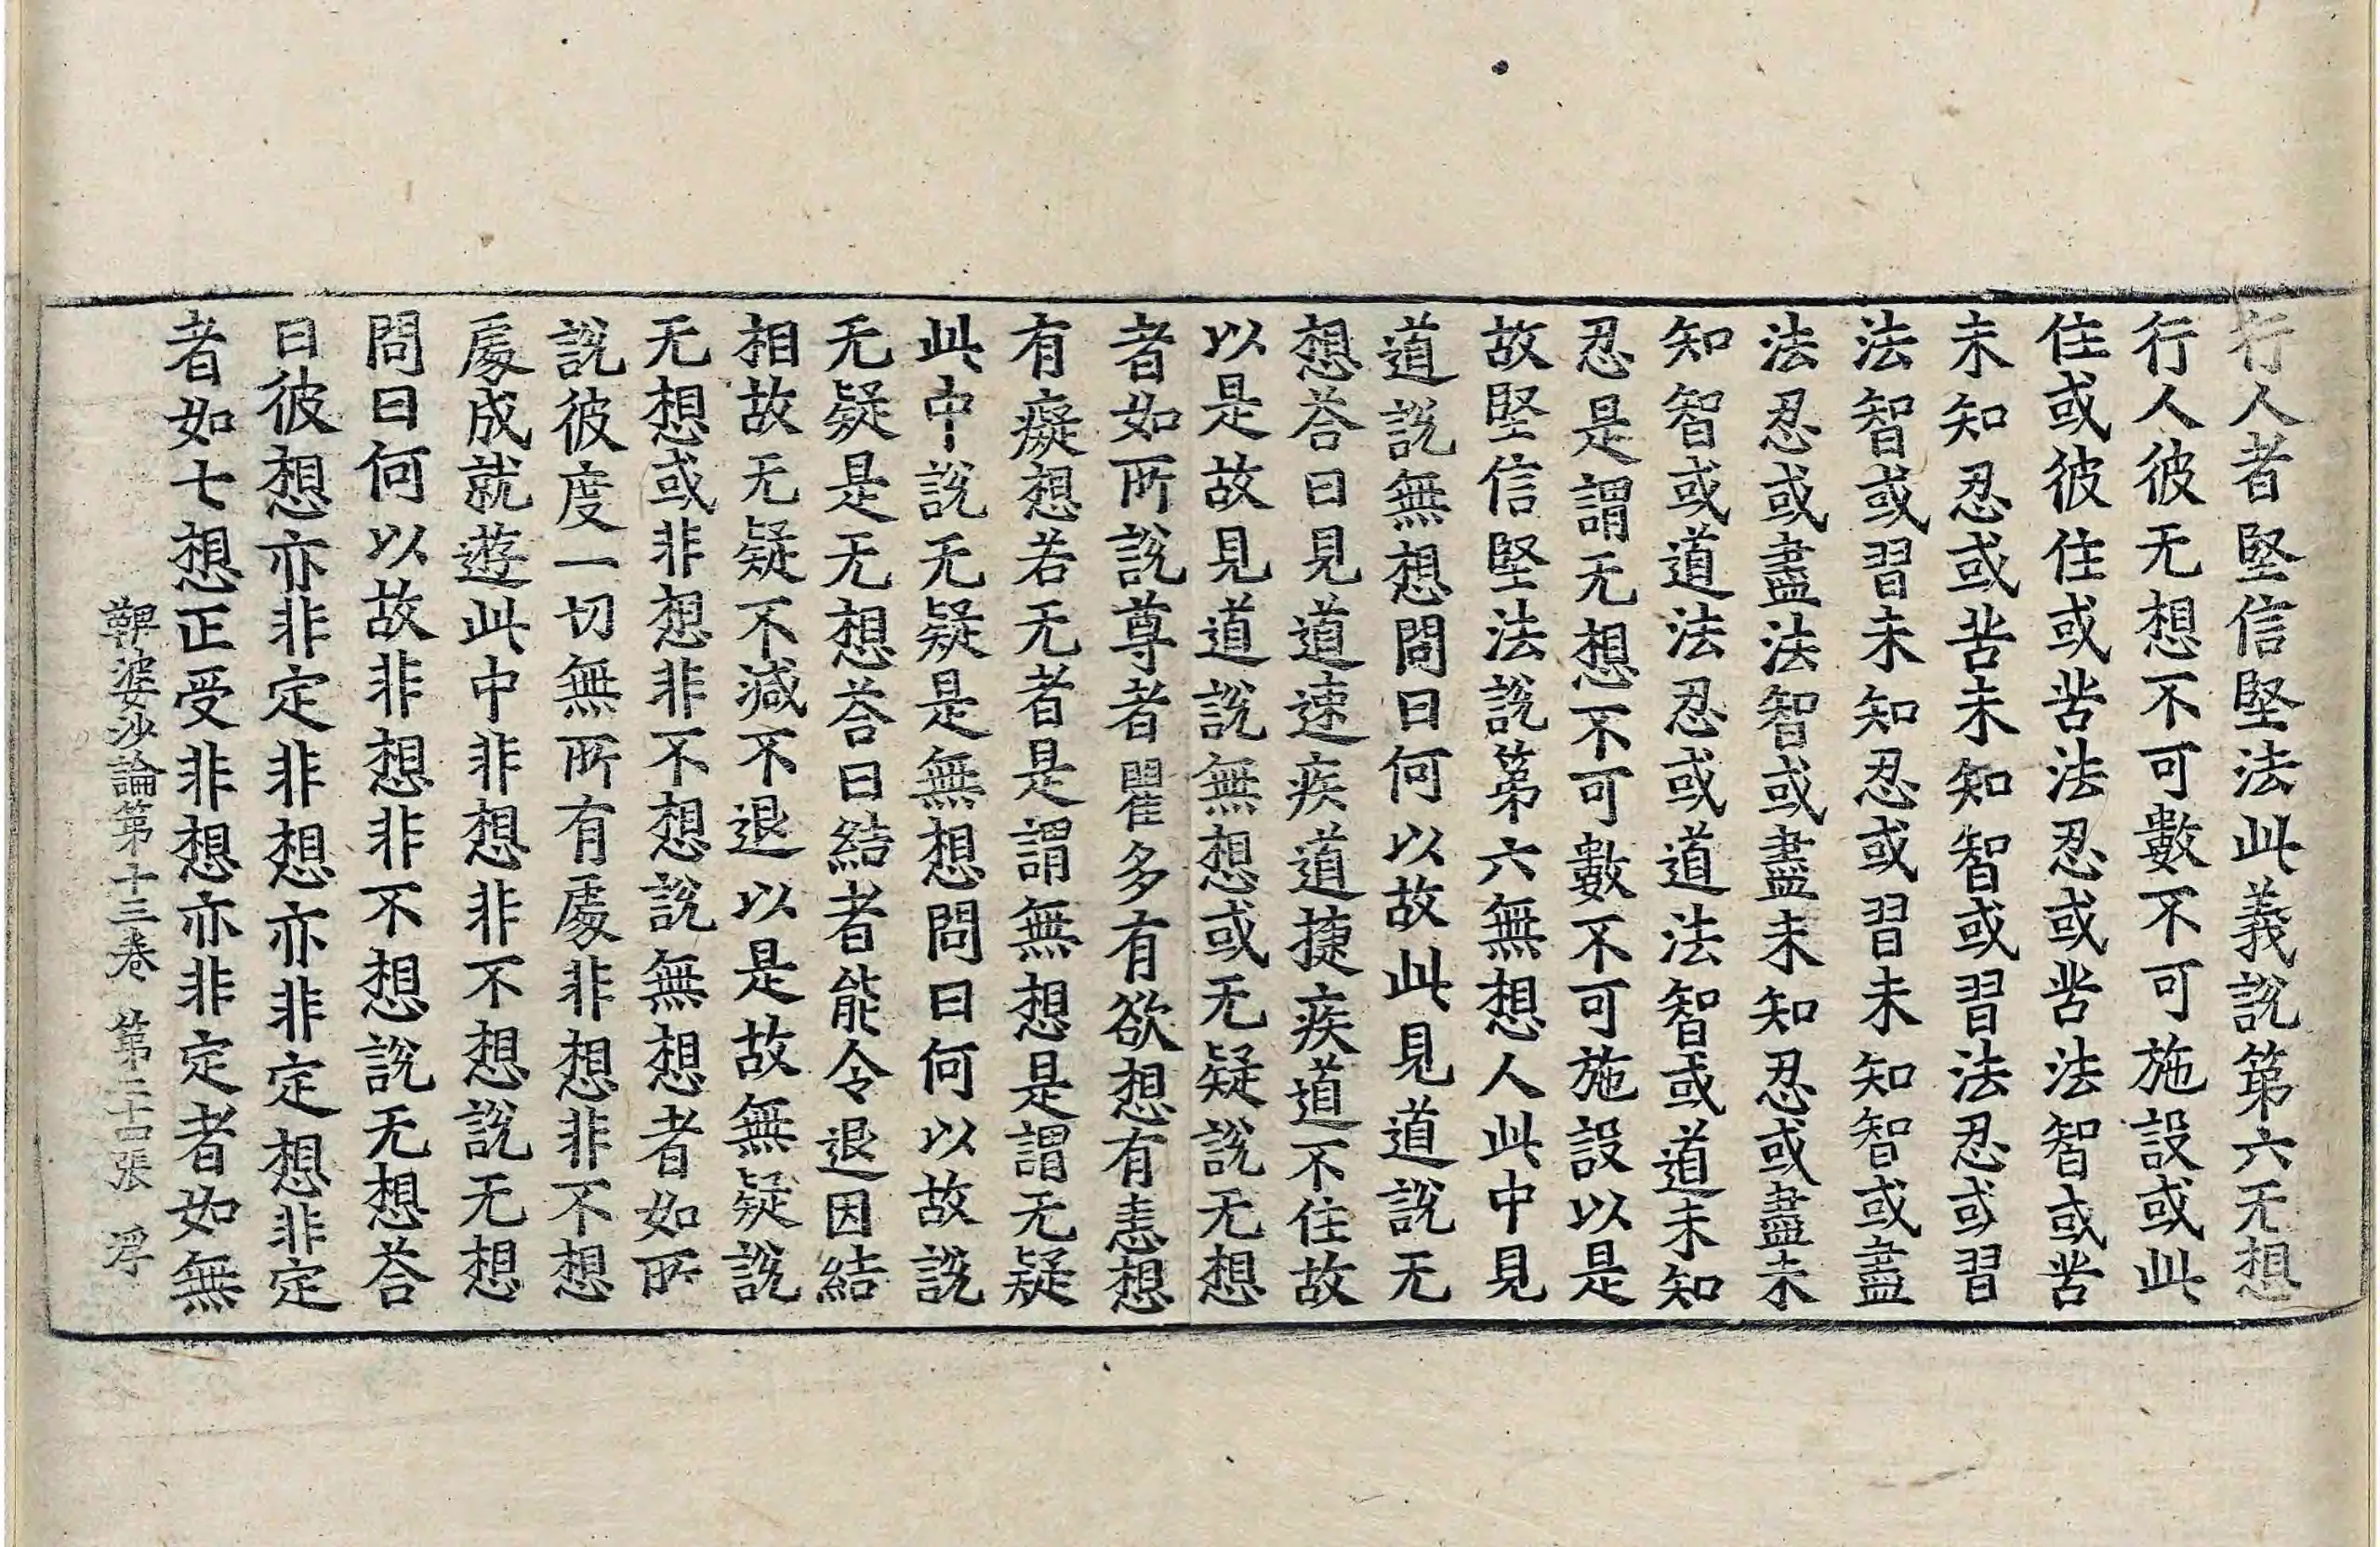 行人者堅信堅法此義說第六无想
行人彼无想不可數不可施設或此
住或彼住或苦法忍或苦法智或苦
未知忍或苦未知智或習法忍或習
法智或習未知忍或習未知智或盡
法忍或盡法智或盡未知忍或盡未
知智或道法忍或道法智或道未知
忍是謂无想不可數不可施設以是
故堅信堅法說第六無想人此中見
道說無想問曰何以故此見道說无
想荅曰見道速疾道揵疾道不住故
以是故見道說無想或无疑說无想
者如所說尊者瞿多有欲想有恚想
有癡想若无者是謂無想是謂无疑
此中說无疑是無想問曰何以故說
无疑是无想荅曰結者能令退因結
相故无疑不減不退以是故無疑說
无想或非想非不想說無想者如所
說彼度一切無所有處非想非不想
處成就遊此中非想非不想說无想
問曰何以故非想非不想說无想荅
曰彼想亦非定非想亦非定想非定
者如七想正受非想亦非定者如無
鞞婆沙論第十三卷 第二十四張 浮